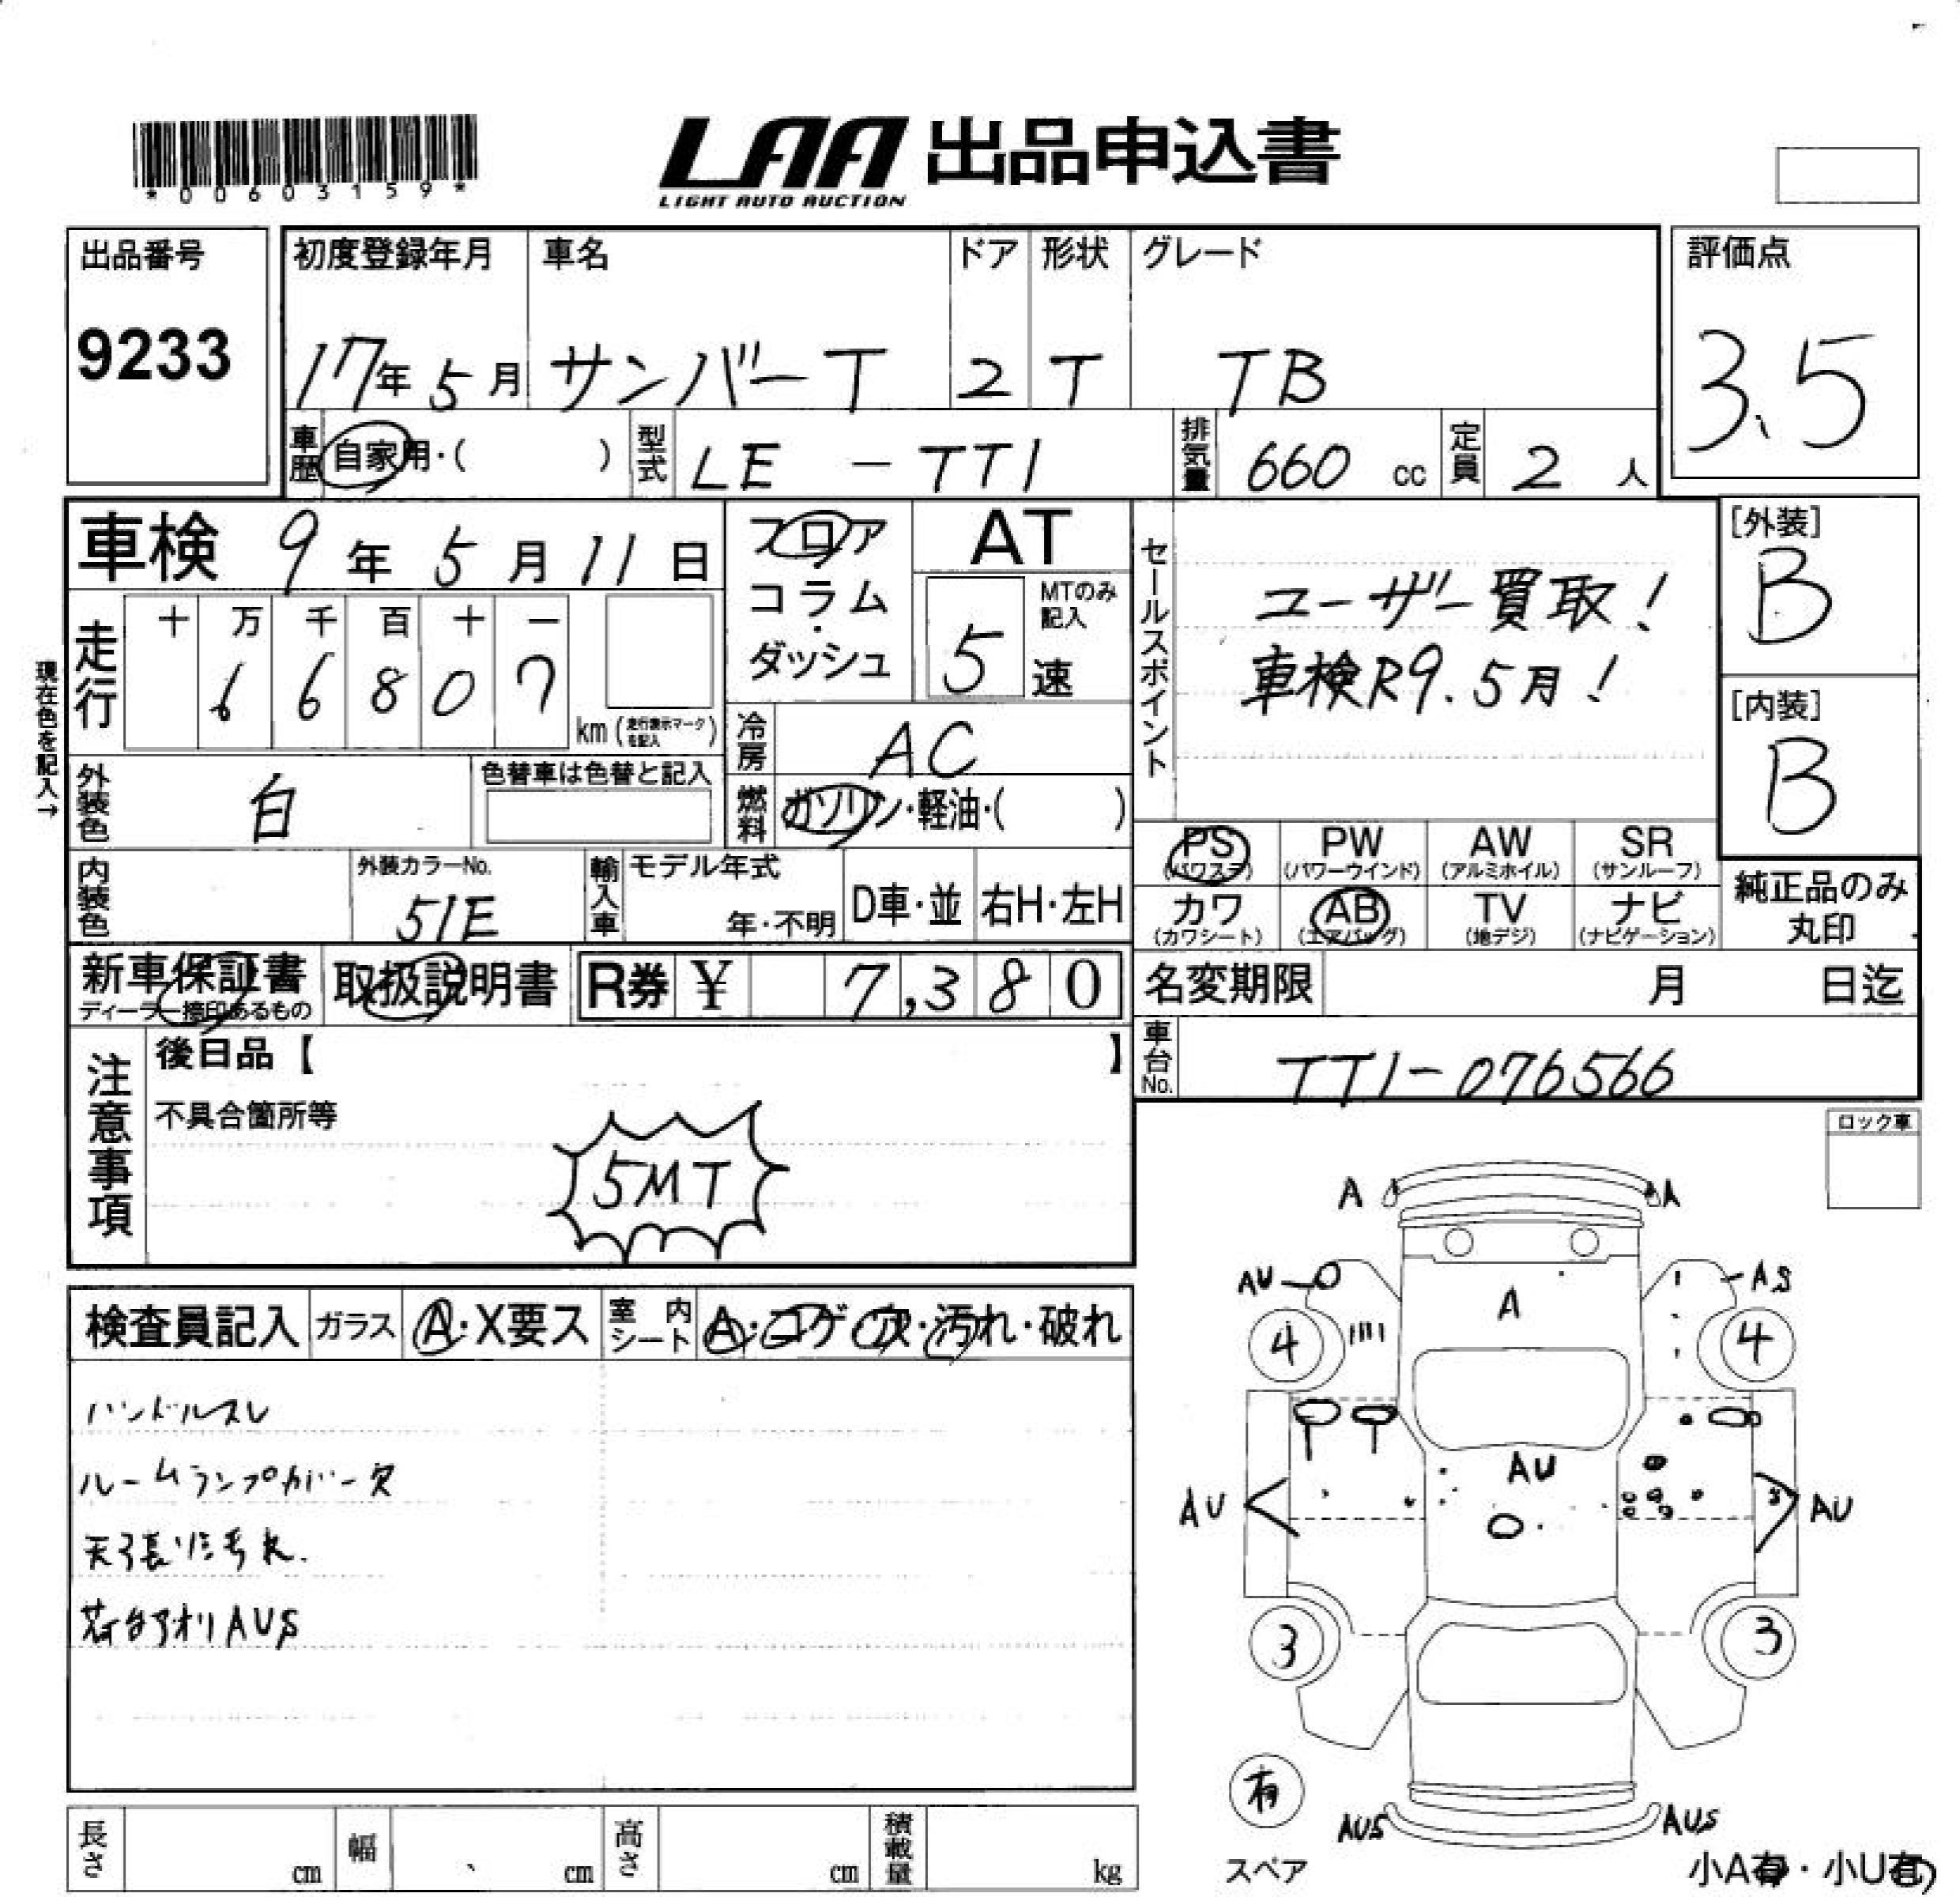 *00603159*
LAA 出品申込書
LIGHT AUTO AUCTION
出品番号
9233
初度登録年月
17年5月
車名
サンバーT
ドア
2
形状
T
グレード
TB
評価点
3.5
車歴 自家用・( )
型式 LE-TT1
排気量 660 cc
定員 2 人
車検 9年5月11日
フロア
コラム
・
ダッシュ
AT
MTのみ記入
5 速
セールスポイント
ユーザー買取!
車検R9.5月!
[外装]
B
[内装]
B
現在色を記入→
走行
十 万 千 百 十 一
6 6 8 0 7
km (走行表示マークを記入)
冷房 AC
外装色 白
色替車は色替と記入
燃料 ガソリン・軽油・( )
PS (パワステ)
PW (パワーウインド)
AW (アルミホイル)
SR (サンルーフ)
カワ (カワシート)
AB (エアバッグ)
TV (地デジ)
ナビ (ナビゲーション)
純正品のみ
丸印
内装色
外装カラーNo.
51E
輸入車
モデル年式
年・不明
D車・並
右H・左H
新車保証書
ディーラー捺印あるもの
取扱説明書
R券 ¥ 7,380
名変期限 月 日迄
車台No. TT1-076566
注意事項
後日品【 】
不具合箇所等
5MT
ロック車
検査員記入
ガラス A・X要ス
室内シート A・コゲ・穴・汚れ・破れ
ハンドルスレ
ルームランプカバー欠
天張り汚れ.
荷台アオリAUS
A A
AU AS
A
4 4
AU
AU AU
3 3
有
スペア
AUS AUS
小A有・小U有
長さ cm
幅 cm
高さ cm
積載量 kg